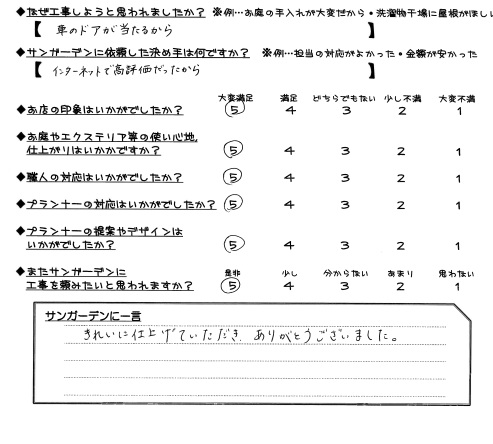 ◆なぜ工事しようと思われましたか? ※例…お庭の手入れが大変だから・洗濯物干場に屋根がほしい
【 車のドアが当たるから 】
◆サンガーデンに依頼した決め手は何ですか? ※例…担当の対応がよかった・金額が安かった
【 インターネットで高評価だったから 】
大変満足 満足 どちらでもない 少し不満 大変不満
◆お店の印象はいかがでしたか? 5 4 3 2 1
◆お庭やエクステリア等の使い心地、
仕上がりはいかかですか? 5 4 3 2 1
◆職人の対応はいかがでしたか? 5 4 3 2 1
◆プランナーの対応はいかがでしたか? 5 4 3 2 1
◆プランナーの提案やデザインは
いかがでしたか? 5 4 3 2 1
◆またサンガーデンに 是非 少し 分からない あまり 思わない
工事を頼みたいと思われますか? 5 4 3 2 1
サンガーデンに一言
きれいに仕上げていただき、ありがとうございました。